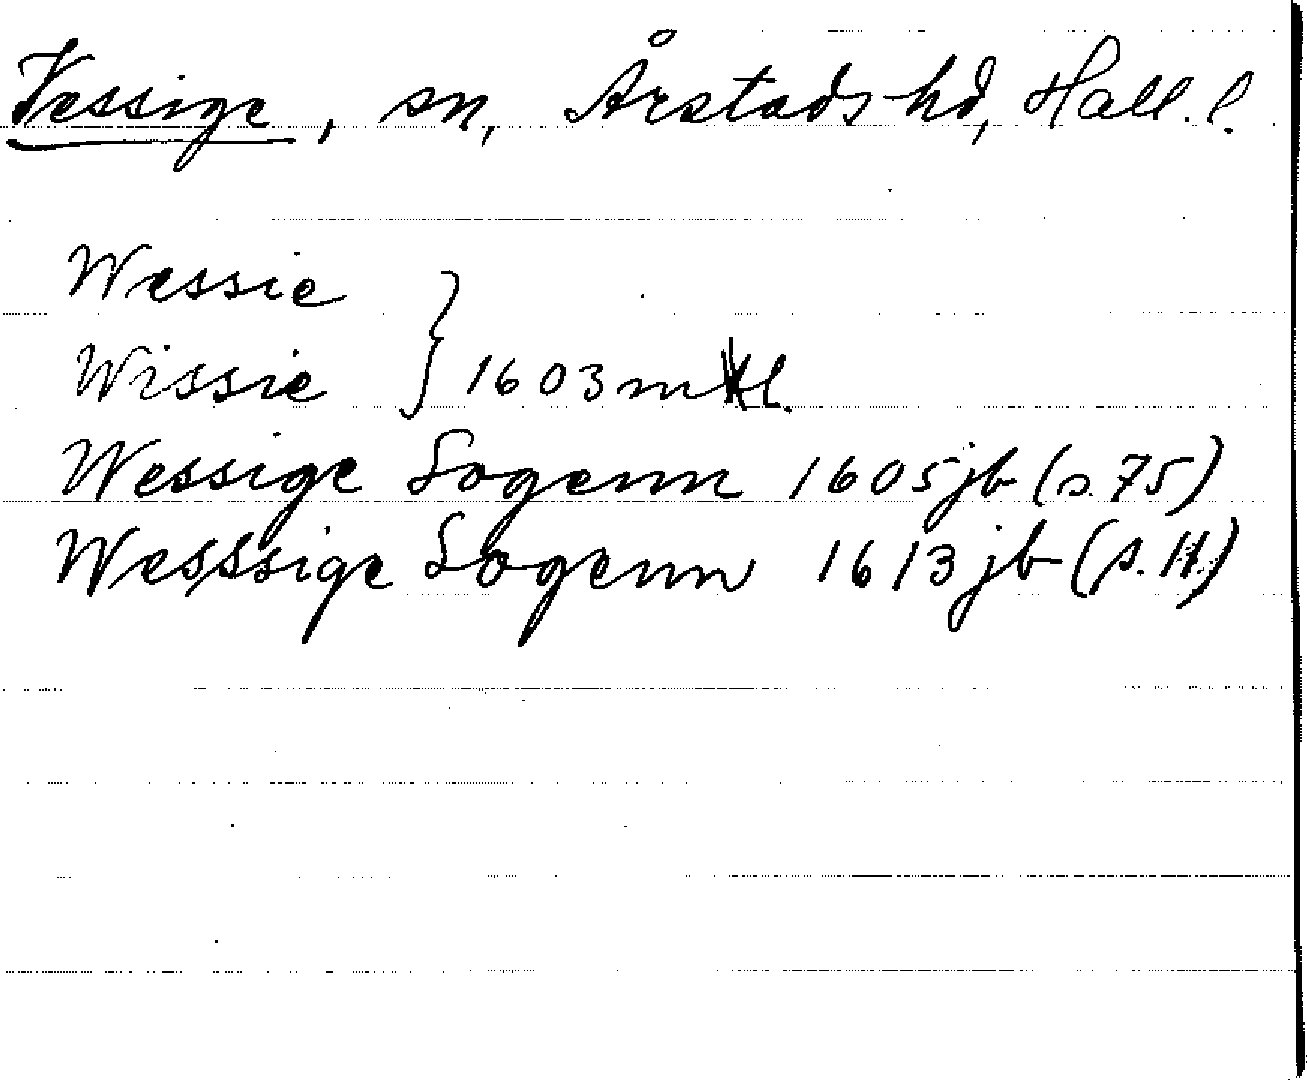 Vessige, sn, Årstads hd, Hall. l.
Wessie
Wissie } 1603 mtl.
Wessige Sogenn 1605 jb (s. 75)
Wesssige Sogenn 1613 jb (s. 11.)